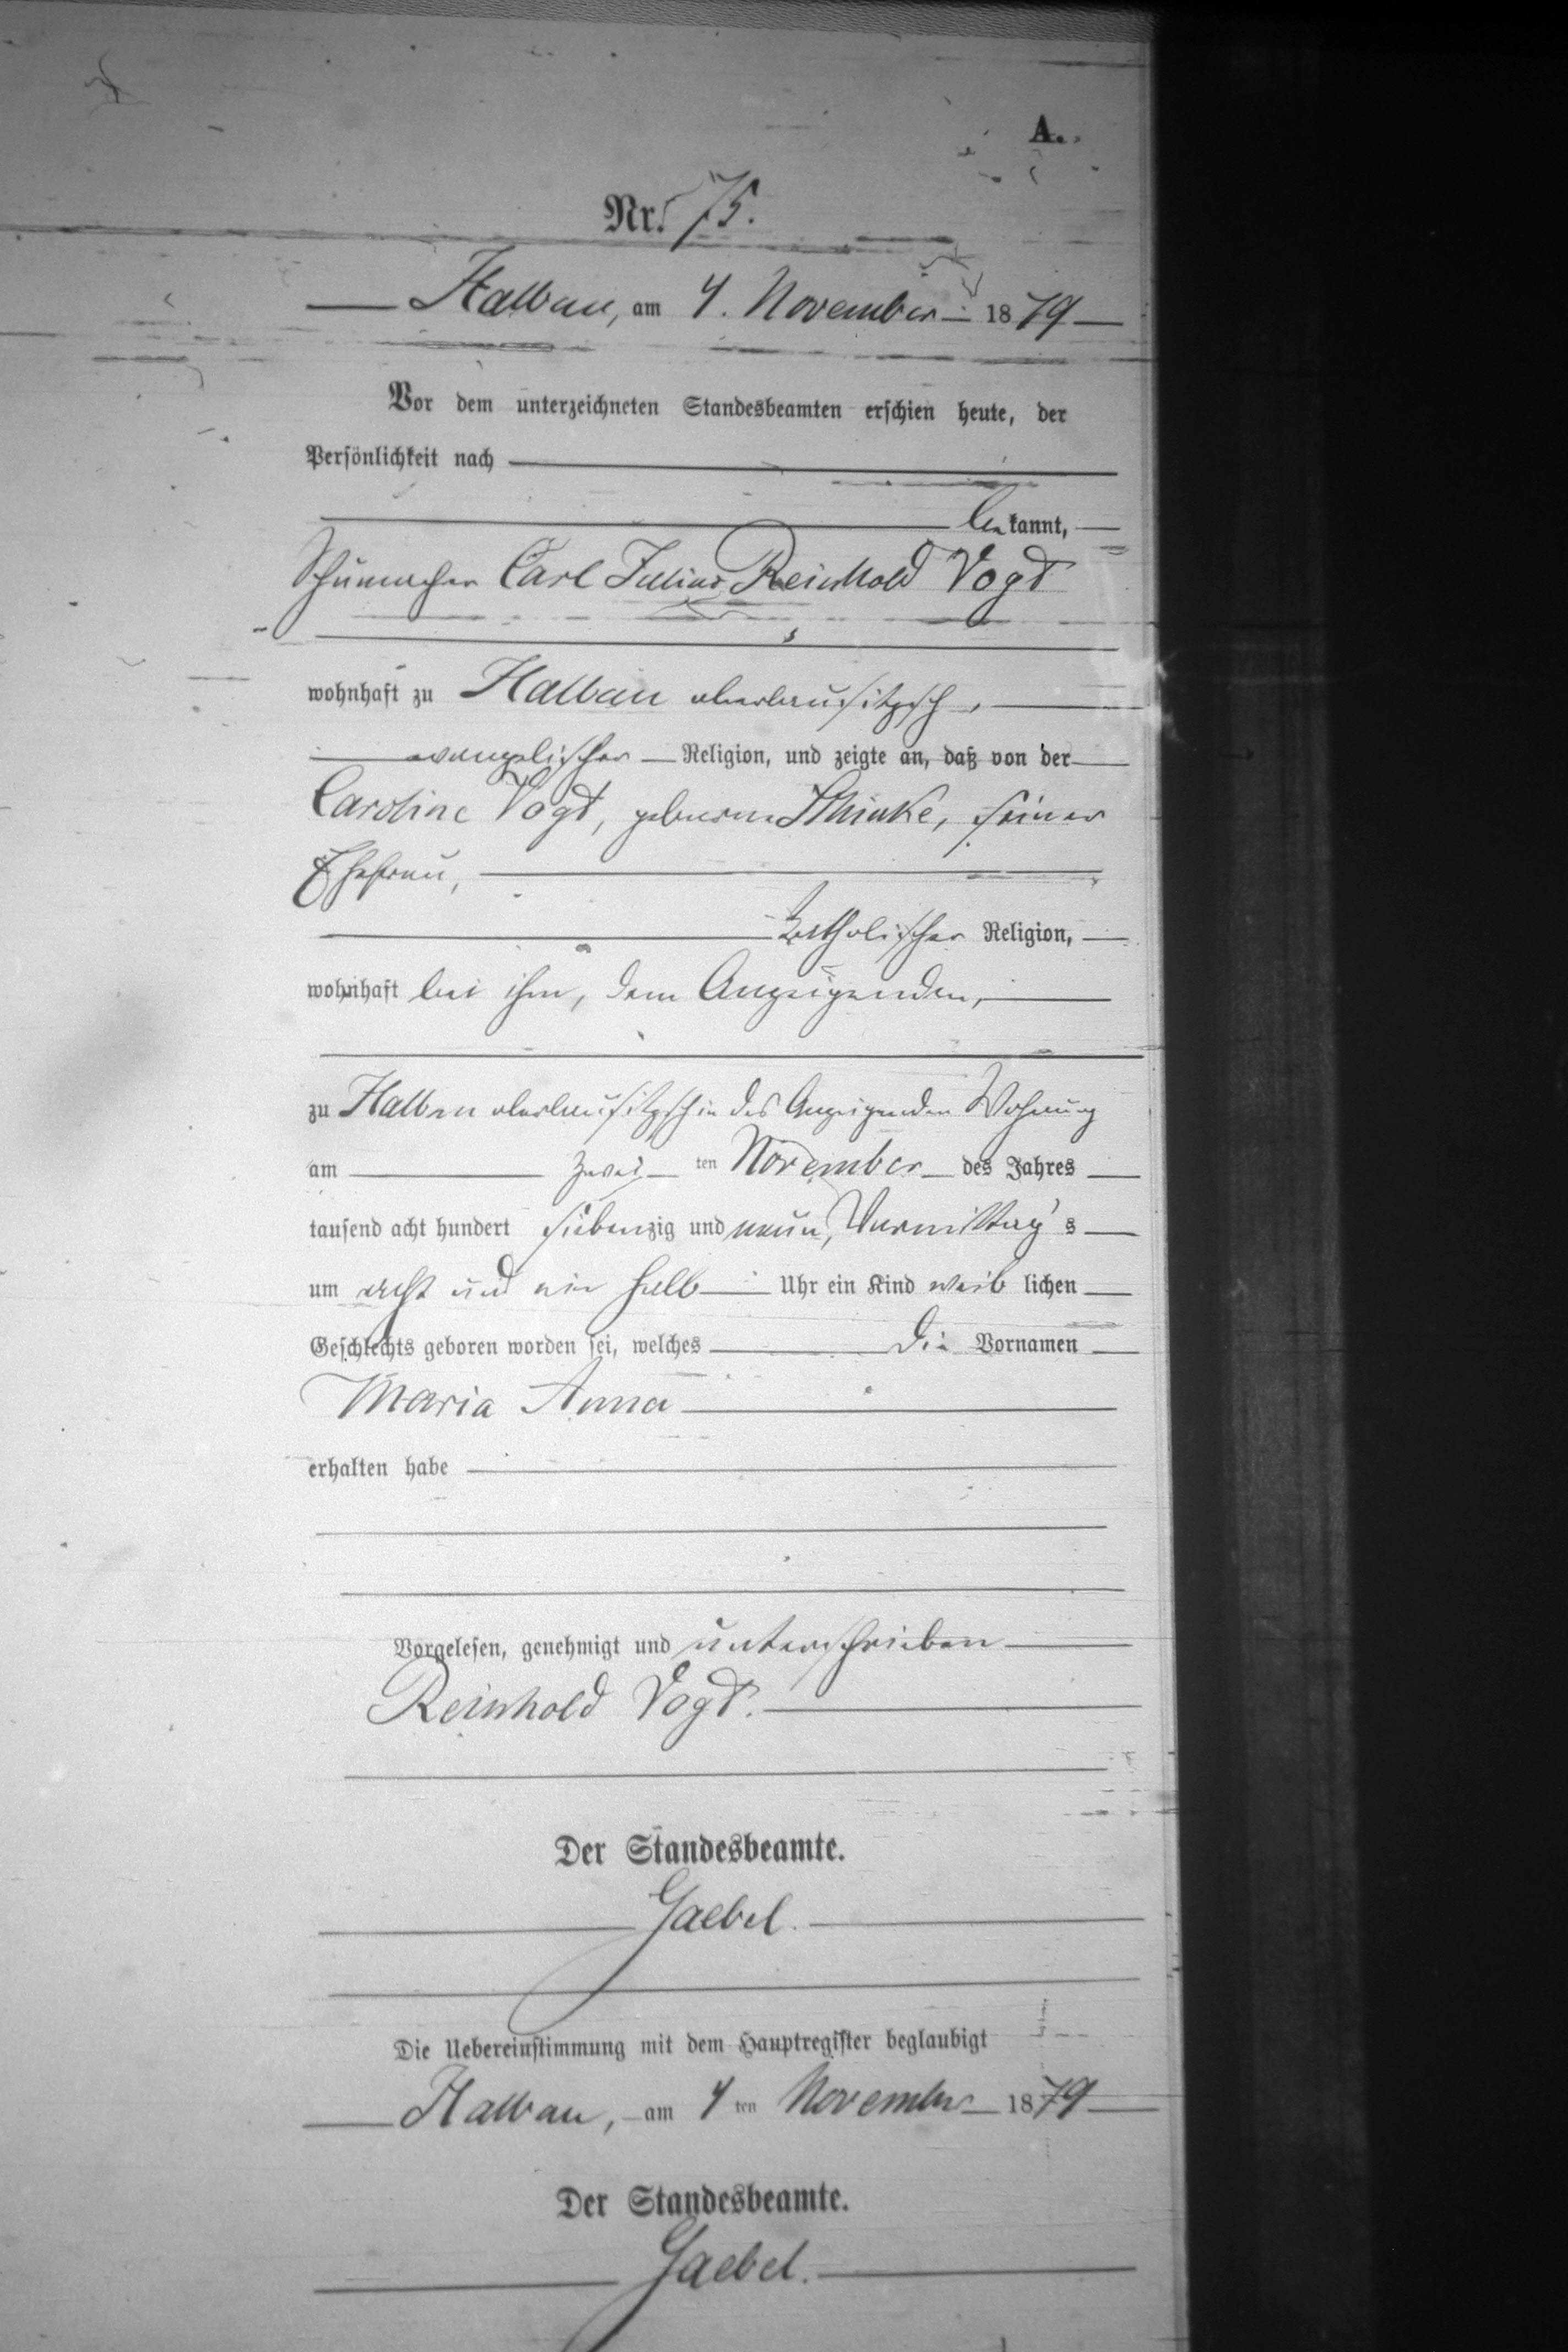 A.
Nr. 75.
Halbau, am 4. November 1879
Vor dem unterzeichneten Standesbeamten erschien heute, der
Persönlichkeit nach
bekannt,
Schumacher Carl Julius Reinhold Vogt
wohnhaft zu Halbau oberlausitzsch,
evangelischer Religion, und zeigte an, daß von der
Caroline Vogt, geborne, seiner
Ehefrau,
katholischer Religion,
wohnhaft bei ihm, dem Anzeigenden,
zu Halbau oberlausitzsch in des Anzeigenden Wohnung
am zwei ten November des Jahres
tausend acht hundert siebenzig und neun, Vormittag's
um acht und ein halb Uhr ein Kind weib lichen
Geschlechts geboren worden sei, welches die Vornamen
Maria Anna
erhalten habe
Vorgelesen, genehmigt und unterschrieben
Reinhold Vogt.
Der Standesbeamte.
Gaebel.
Die Uebereinstimmung mit dem Hauptregister beglaubigt
Halbau, am 4 ten November 1879
Der Standesbeamte.
Gaebel.